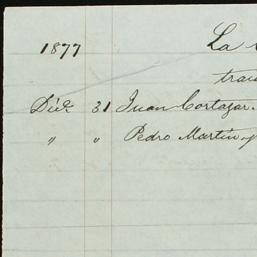 1877 La
trans
Dic 31 Juan Cortazar.
" " Pedro Martin